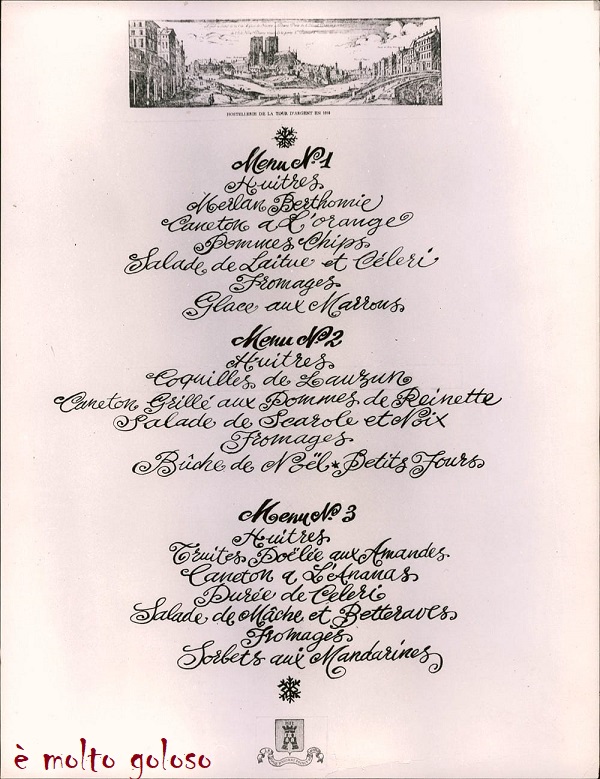 HOSTELLERIE DE LA TOUR D'ARGENT EN
Menu Nº1
Huitres
Merlan Berthomie
Caneton a L'orange
Pommes Chips
Salade de Laitue et Céleri
Fromages
Glace aux Marrons
Menu Nº2
Huitres
Coquilles de Lauzun
Caneton Grillé aux Pommes de Reinette
Salade de Scarole et Noix
Fromages
Bûche de Noël * Petits Fours
Menu Nº 3
Huitres
Truites Poëlée aux Amandes
Caneton a L'Ananas
Purée de Celeri
Salade de Mâche et Betteraves
Fromages
Sorbets aux Mandarines
è molto goloso